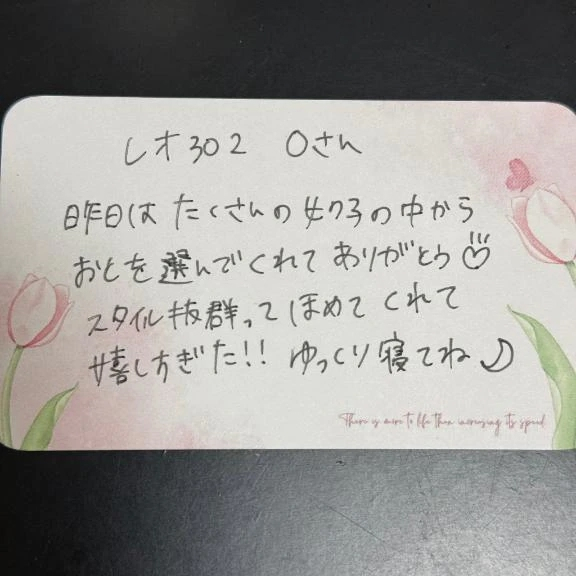 レオ302 Oさん
昨日は たくさんの女の子の中から
おとを選んでくれて ありがとう
スタイル抜群って ほめて くれて
嬉しすぎた!! ゆっくり寝てね
There is more to life than increasing its speed.